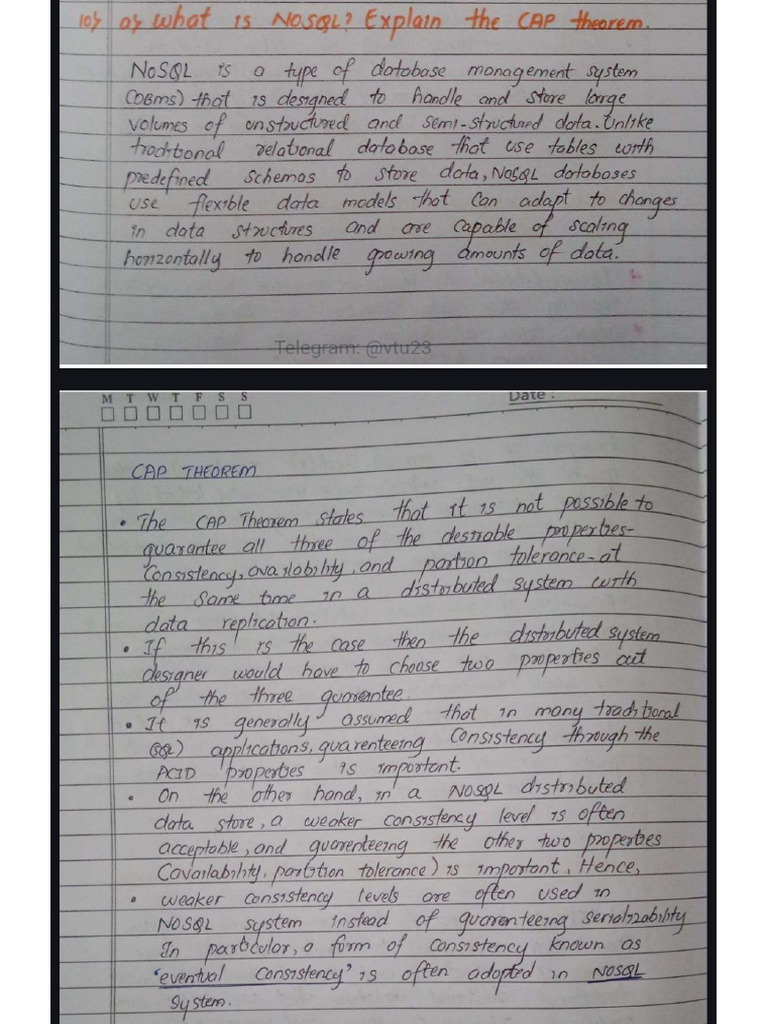 10) a) What is NOSQL? Explain the CAP theorem.
NOSQL is a type of database management system
(DBMS) that is designed to handle and store large
volumes of unstructured and semi-structured data. Unlike
traditional relational database that use tables with
predefined schemas to store data, NOSQL databases
use flexible data models that can adapt to changes
in data structures and are capable of scaling
horizontally to handle growing amounts of data.
Telegram: @vtu23
M T W T F S S
Date :
CAP THEOREM
• The CAP Theorem states that it is not possible to
guarantee all three of the desirable properties-
Consistency, availability, and partion tolerance-at
the same time in a distributed system with
data replication.
• If this is the case then the distributed system
designer would have to choose two properties out
of the three guarantee.
• It is generally assumed that in many traditional
(SQL) applications, guarenteeing consistency through the
ACID properties is important.
• On the other hand, in a NOSQL distributed
data store, a weaker consistency level is often
acceptable, and guarenteeing the other two properties
(availability, partition tolerance) is important, Hence,
• weaker consistency levels are often used in
NOSQL system instead of guarenteeing serializability
In particular, a form of consistency known as
'eventual consistency' is often adopted in NOSQL
System.